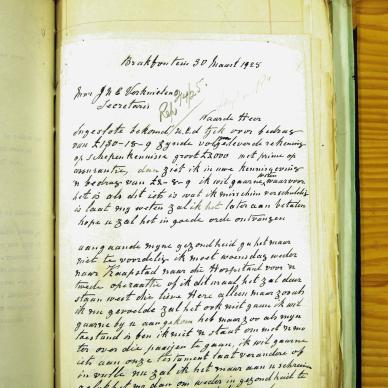 Brakfontein 30 Maart 1925
Mnr J N E
Secretaris
Rep 1/4/25.
Waarde Heer
Ingeslote bekomd u.e.d tjek voor bedrag
van £130-18-9 zynde volgedeverde rekening
op Schepenkennisse groot £2000 met prime op
dan ziet ik in uwe kennisgeving
n bedrag van £2-8-9 ik wil gaarne weten waarvoor
het is als dit iets is wat ik misschien verschuldig
is laat my weten zal ik het later aan betalen
hope u zal het in goede orde ontvangen
aangaande myne gezondheid gu het maar
niet te voordelig ik moet woensdag weder
naar Kaapstad naar die Hospetaal voor n
twede operaatie of ik dit maal het zal deur
staan weet die lieve Here alleen maar zoo als
ik nu gevoelde zal het ook niet gaan ik wil
gaarne by u aangekom heb maar zoo als myn
toestand is ben ik niet n staat om met n mo
ter over die paaijen te gaan, ik wil gaarne
iets aan onze testament laat verandere of
in vulle nu zal ik het maar aan u schrein
my dan om weder in gezondheid te